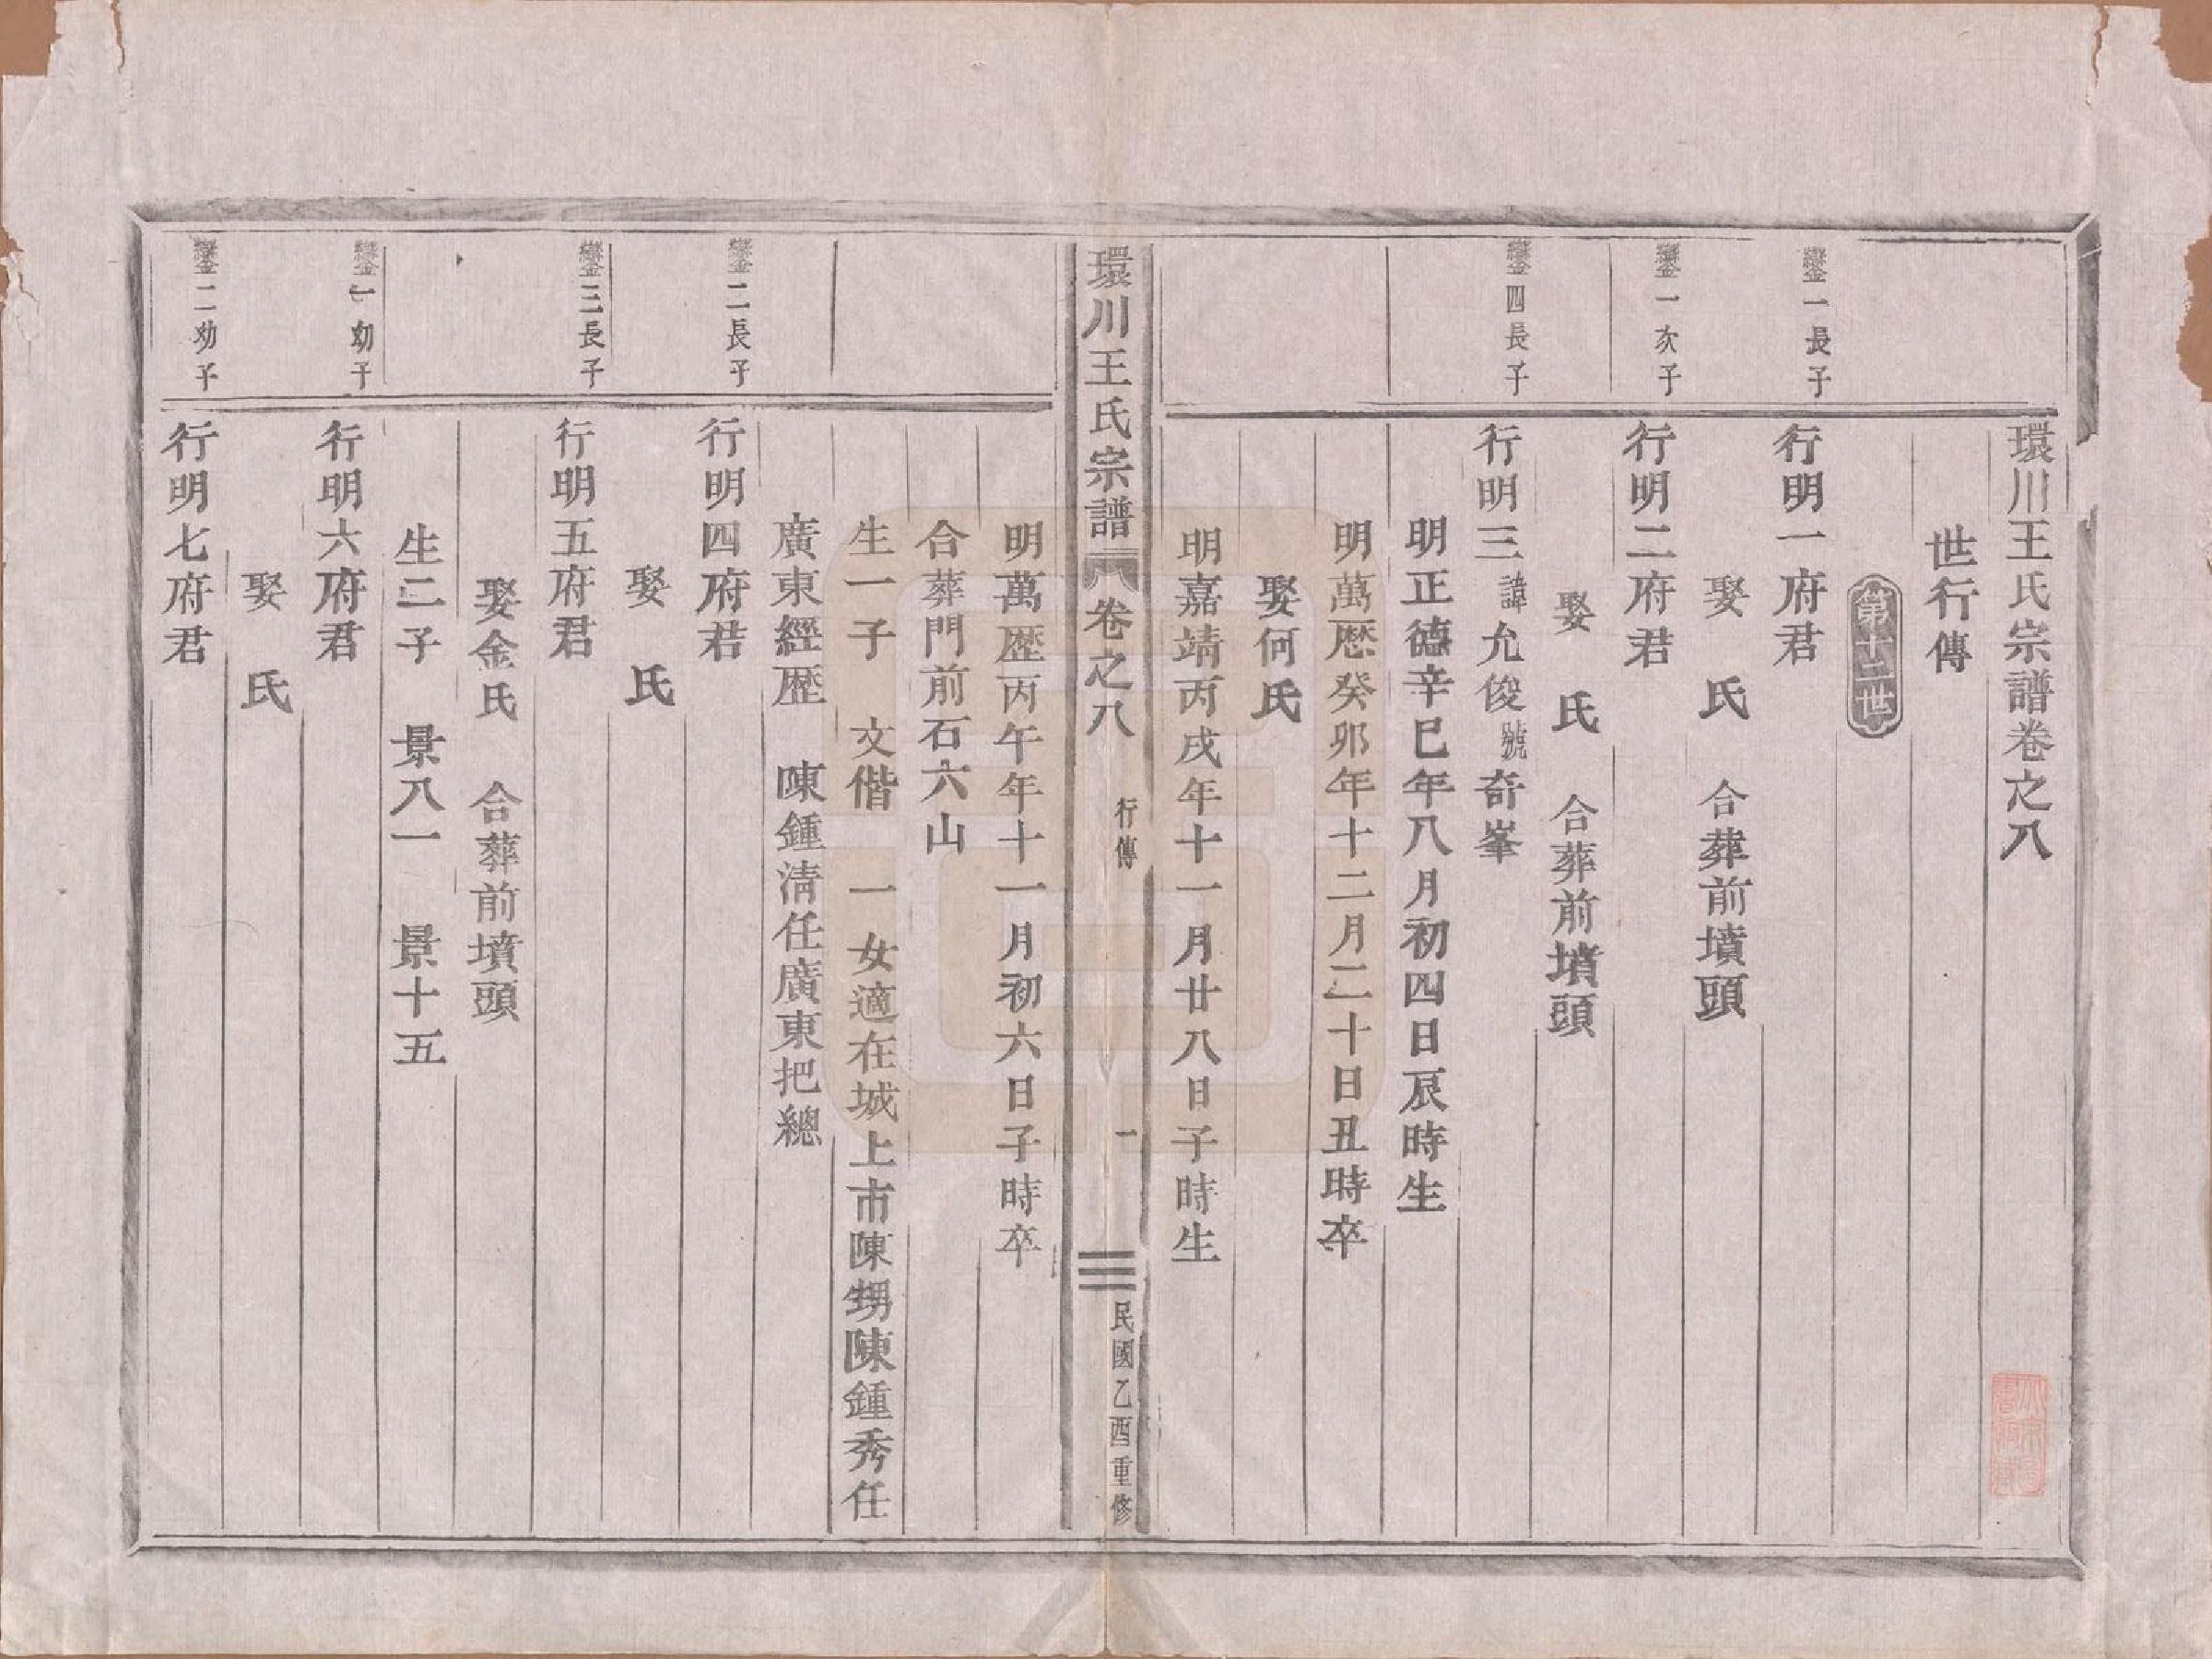 環川王氏宗譜卷之八
世行傳
第十二世
鑾一長子
行明一府君
娶　氏　合葬前墳頭
鑾一次子
行明二府君
娶　氏　合葬前墳頭
鑾四長子
行明三諱允俊號奇峯
明正德辛巳年八月初四日辰時生
明萬歷癸卯年十二月二十日丑時卒
娶何氏
明嘉靖丙戌年十一月廿八日子時生
環川王氏宗譜　卷之八　行傳　一　民國乙酉重修
明萬歷丙午年十一月初六日子時卒
合葬門前石六山
生一子　文偕　一女適在城上市陳甥陳鍾秀任
廣東經歷　陳鍾淸任廣東把總
鑾二長子
行明四府君
娶　氏
鑾三長子
行明五府君
娶金氏　合葬前墳頭
生二子　景八一　景十五
鑾一幼子
行明六府君
娶　氏
鑾二幼子
行明七府君